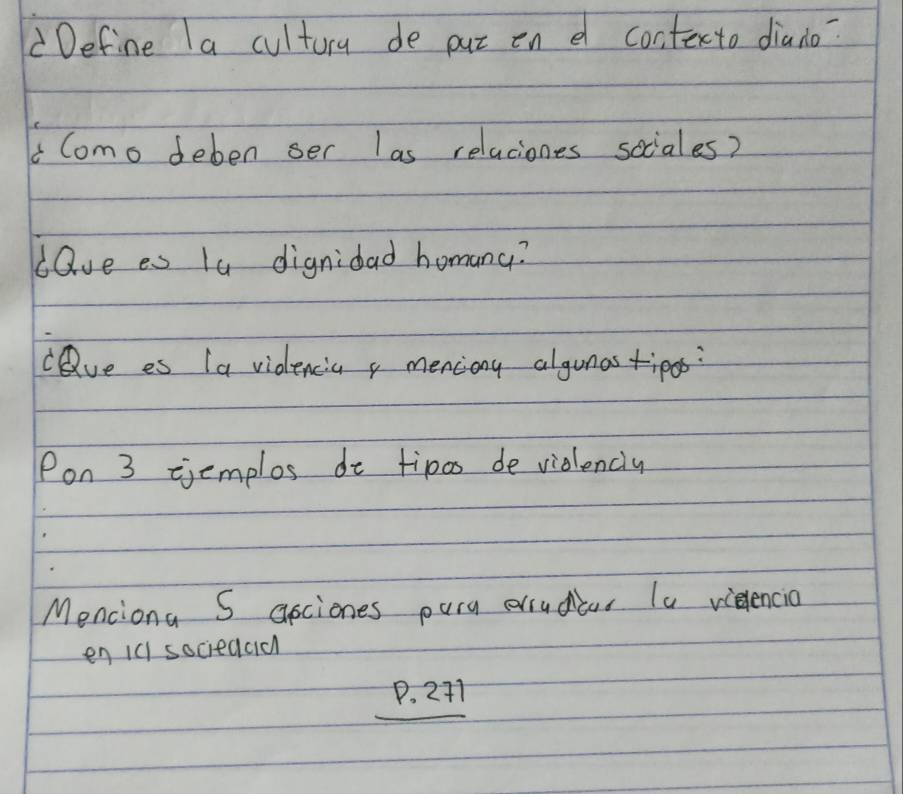 ¿Define la cultura de paz en el contexto diario?
¿Como deben ser las relaciones sociales?
¿Que es la dignidad homana?
¿Que es la violencia y menciona algunos tipos?
Pon 3 ejemplos de tipos de violencia
.
.
Menciona 5 acciones para erradicar la violencia
en la sociedad
P. 271